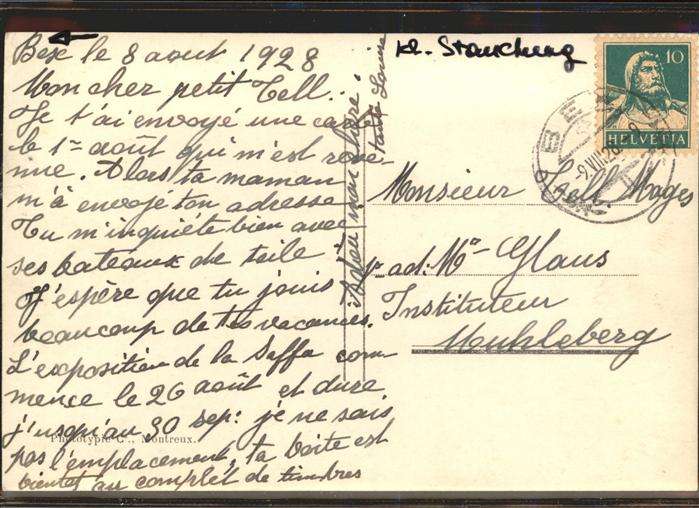 Bex le 8 aout 1928
Mon cher petit Tell.
Je t'ai envoyé une carte
le 1er août qui m'est reve
nue. Alors ta maman
m'a envoyé ton adresse
Tu m'inquiéte bien avec
ses bateaux de toile
J'espère que tu jouis
beaucoup de tes vacances.
L'exposition de la Saffa com
mence le 26 août et dure
j'usqu'au 30 sep: je ne sais
pas l'emplacement, ta boite est
bientot au complét de timbres
mon chéri.
tante Louise
Phototypie Co., Montreux.
kl. Stauchung
10
HELVETIA
BEX
9.VIII.28
Monsieur Tell Moges
pr ad: Mr Glaus
Instituteur
Muhleberg